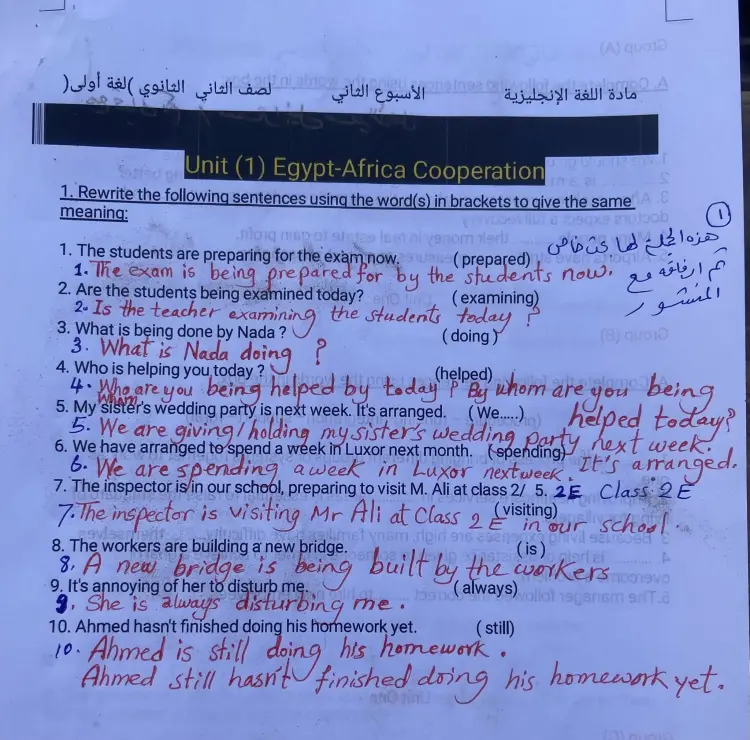 مادة اللغة الإنجليزية الأسبوع الثاني لصف الثاني الثانوي )لغة أولى(
Unit (1) Egypt-Africa Cooperation
1. Rewrite the following sentences using the word(s) in brackets to give the same
meaning:
①
هذه الجملة لها كى خاص
تم ارفاقه مع
المنشور
1. The students are preparing for the exam now. ( prepared)
1. The exam is being prepared for by the students now.
2. Are the students being examined today? ( examining)
2. Is the teacher examining the students today ?
3. What is being done by Nada ? (doing )
3. What is Nada doing ?
4. Who is helping you today ? (helped)
4. Who are you being helped by today ? By whom are you being
Whom
helped today?
5. My sister's wedding party is next week. It's arranged. ( We.....)
5. We are giving/holding my sister's wedding party next week.
6. We have arranged to spend a week in Luxor next month. (spending)
It's arranged.
6. We are spending a week in Luxor next week.
7. The inspector is in our school, preparing to visit M. Ali at class 2/ 5. 2E Class 2E
(visiting)
7. The inspector is visiting Mr Ali at Class 2E in our school.
8. The workers are building a new bridge. (is )
8. A new bridge is being built by the workers
9. It's annoying of her to disturb me. ( always)
9. She is always disturbing me.
10. Ahmed hasn't finished doing his homework yet. ( still)
10. Ahmed is still doing his homework.
Ahmed still hasn't finished doing his homework yet.